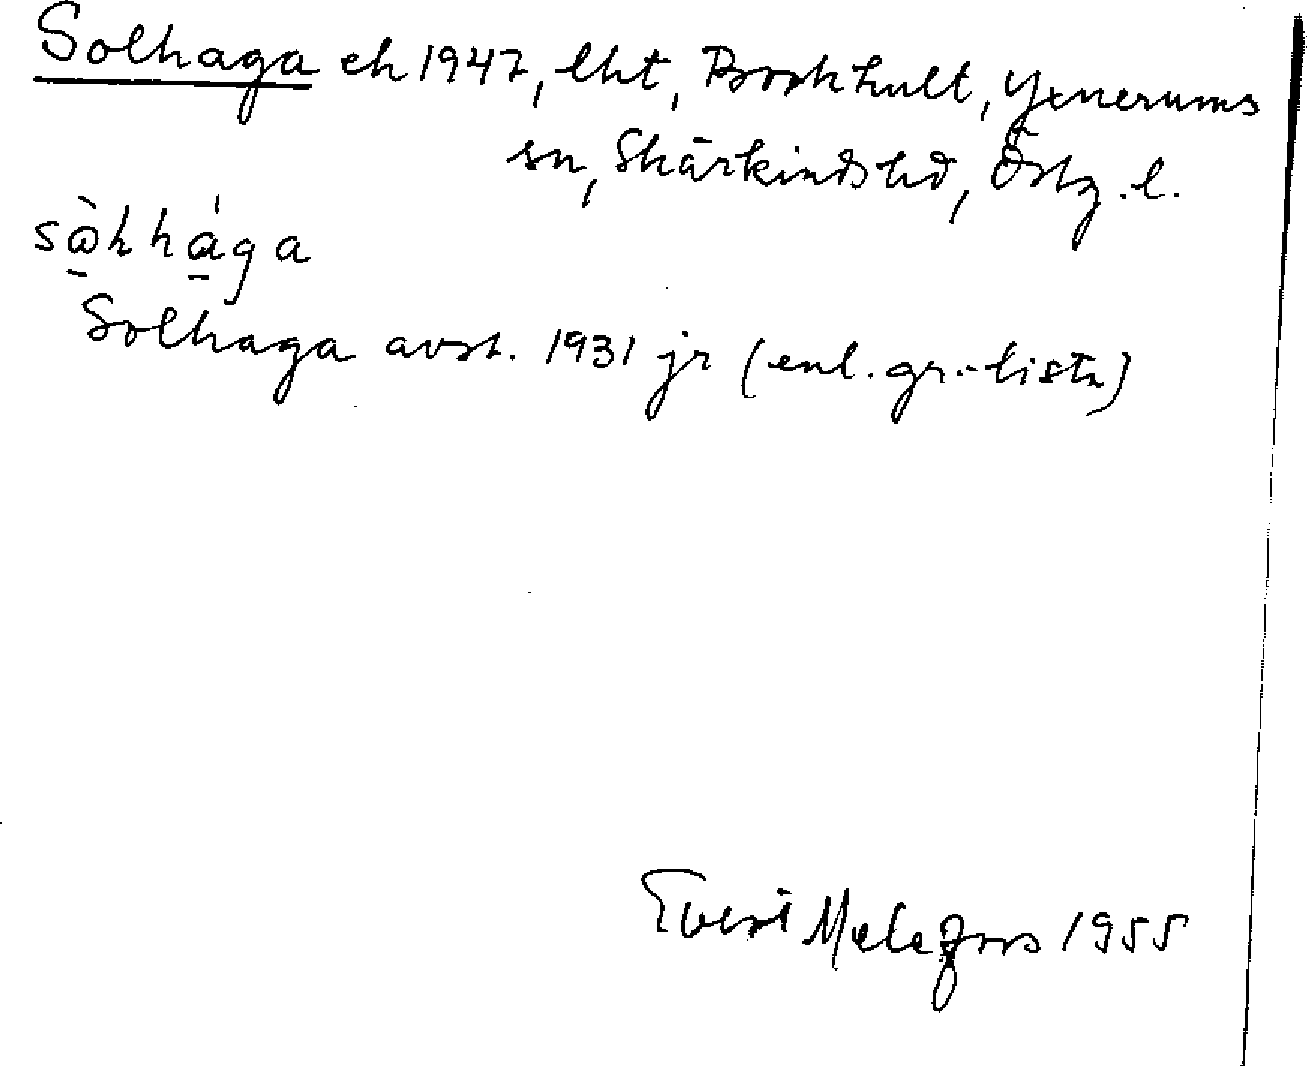 Solhaga eh 1947, lht, Boskhult, Yxnerums
sn, Skärkinds hd, Östg. l.
Solhaga avst. 1931 jr (enl. gr.-lista)
Evert Melefors 1955